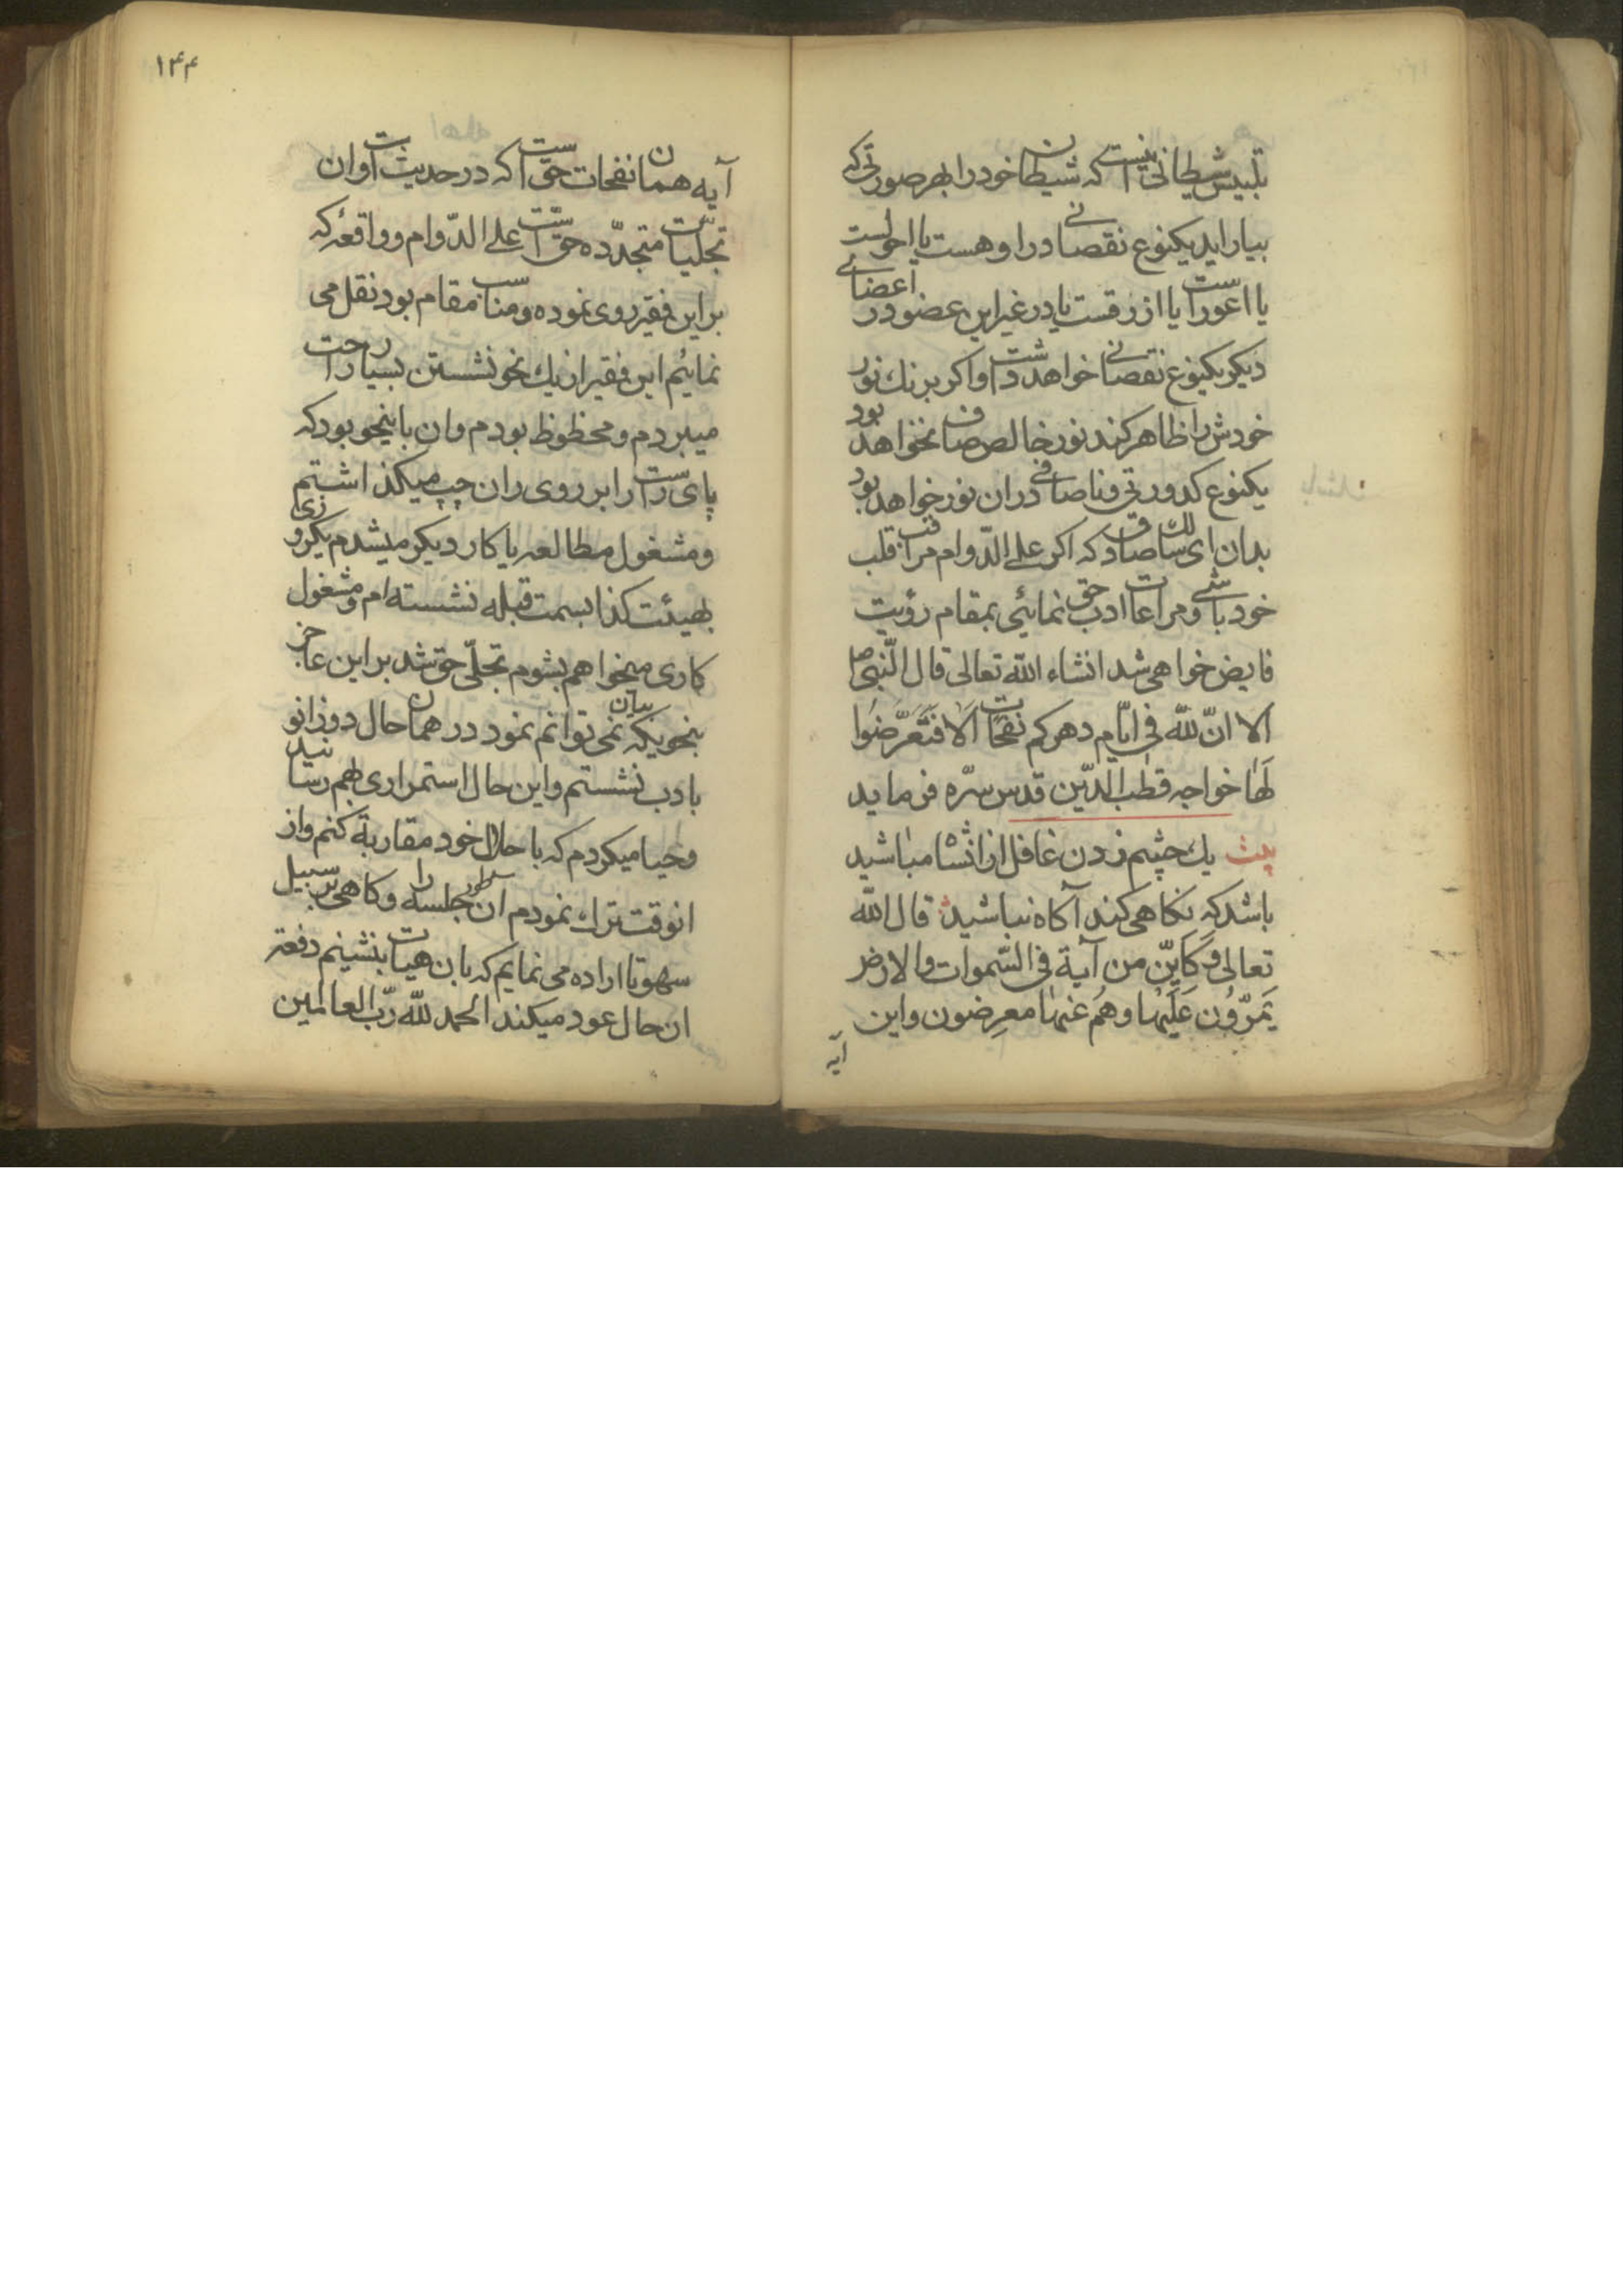 تلبیس شیطانی نیست که شیطان خود را بهر صورتی که
بیاراید یکنوع نقصانی در او هست یا احول است
یا اعور است یا ازرقست یا در غیر این عضو در اعضای
دیگر یکنوع نقصانی خواهد داشت و اگر برنك نور
خودش را ظاهر کند نور خالص صاف نخواهد بود
یکنوع کدورتی و ناصافی در ان نور خواهد بود
بدان ای سالك صادق که اگر علی الدّوام مراقب قلب
خود باشی و مراعات ادب حق نمائی بمقام رؤیت
فایض خواهی شد انشاء الله تعالی قال النّبی ص
الا انّ لله فی ایّام دهرکم نفحات الا فَتَعَرَّضُوا
لَهٰا خواجه قطب الدّین قدس سرّه فرماید
بیت یك چشم زدن غافل از انشاه مباشید
باشد که نکاهی کند آکاه نباشید قال الله
تعالی وَکَاَیِّن من آیة فی السّموات والارض
یَمُرّوُن عَلَیهٰا وهُم عَنهٰا معرِضون واین
آیه
۱۴۴
آیه همان نفحات حق است که در حدیث است و ان
تجلّیات متجدّده حقّ است علی الدّوام و واقعهٔ که
بر این فقیر روی نموده و مناسب مقام بود نقل می
نمایٔم این فقیر از یك نحو نشستن بسیار راحت
میبردم و محظوظ بودم وان باینحو بود که
پای راست را بر روی ران چپ میکذاشتم
و مشغول مطالعه یا کار دیکر میشدم یکروزی
بهیئت کذا بسمت قبله نشسته ام و مشغول
کاری میخواهم بشوم تجلّی حق شد بر این عاجز
بنحویکه بیان نمی توانم نمود در همان حال دوزانو
بادب نشستم و این حال استمراری بهم رسانید
و حیا میکردم که با حلال خود مقاربة کنم و از
انوقت ترك نمودم ان طور جلسه را و کاهی بر سبیل
سهو تا اراده می نمایم که بان هیات بنشینم دفعة
ان حال عود میکند الحمد لله ربّ العالمین